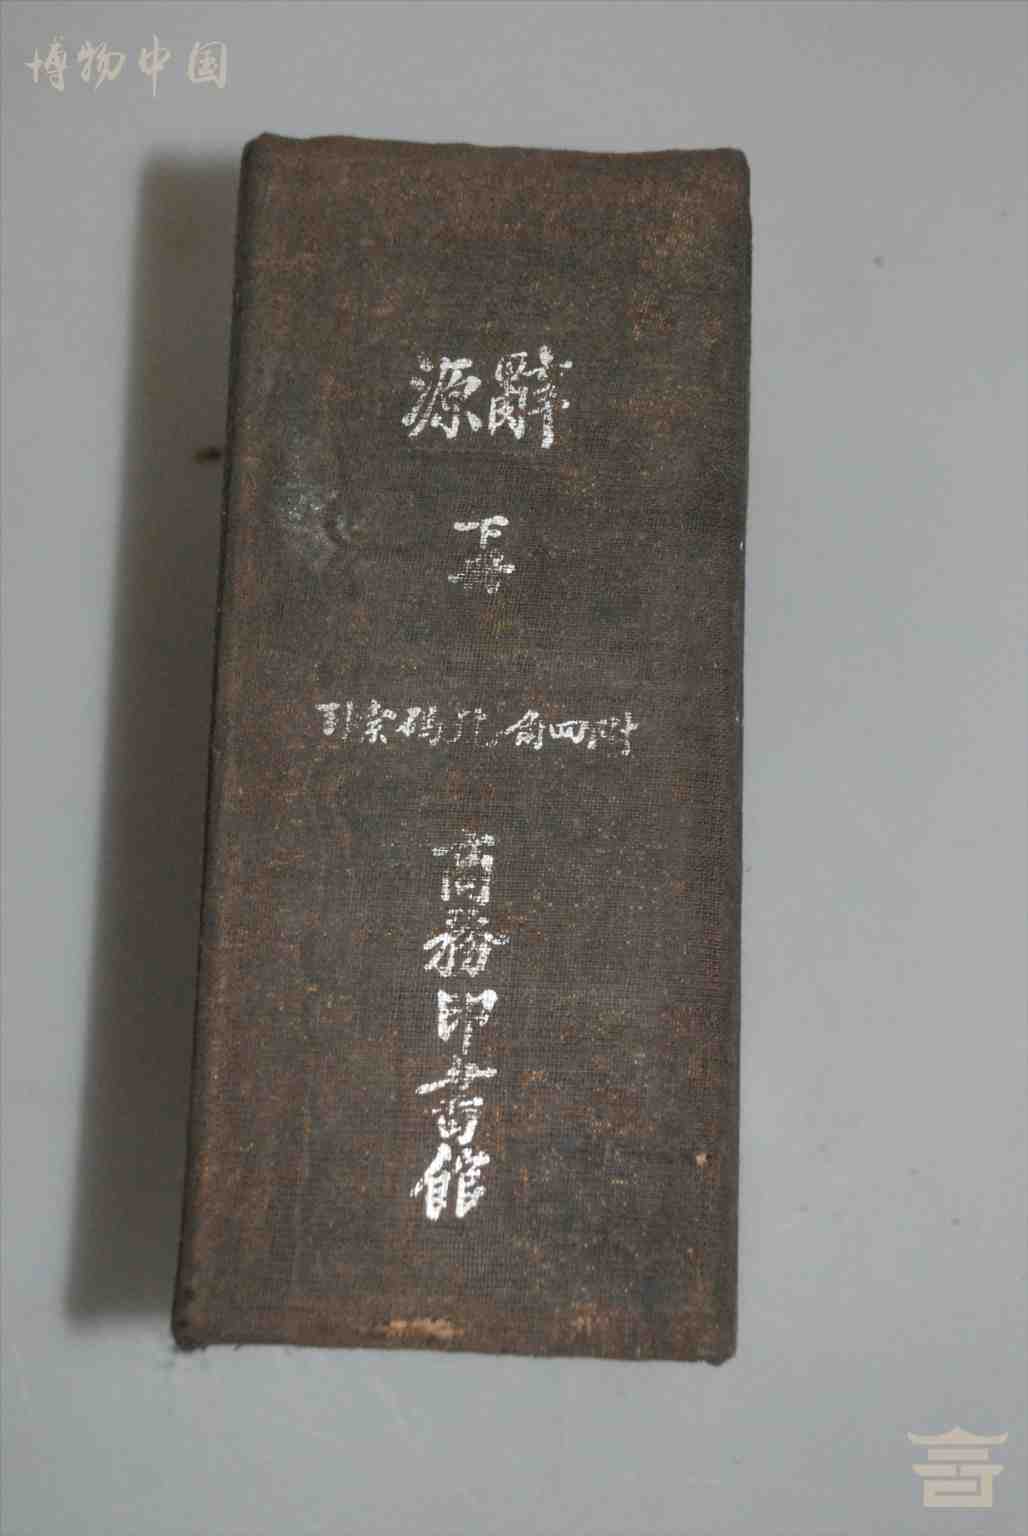 博物中国
辭源
下冊
附四角號碼索引
商務印書館